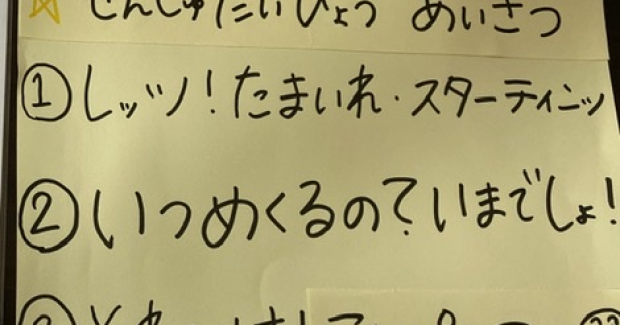 ☆ せんしゅだいひょう めいさつ
① しッツ!たまいれ・スターティンッ
② いつめくるの?いまでしょ!